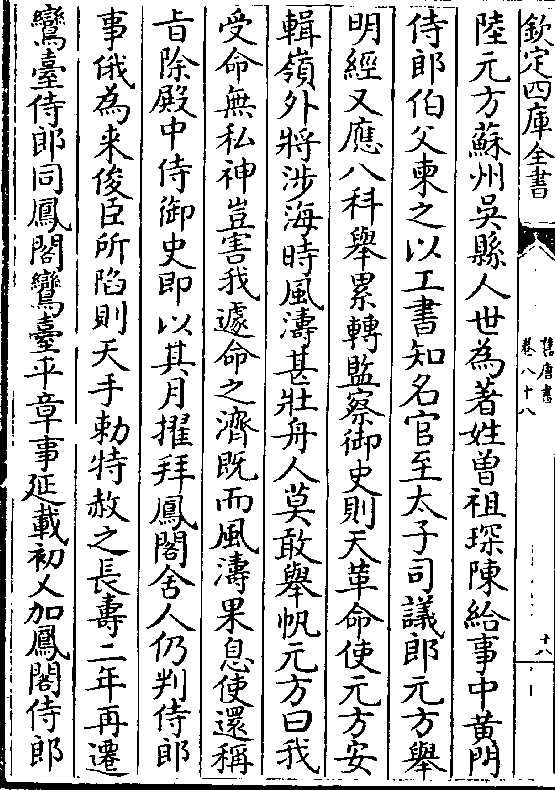 欽定四庫全書
舊唐書
卷八十八
十八
陸元方蘇州吳縣人世為著姓曾祖琛陳給事中黃門
侍郎伯父柬之以工書知名官至太子司議郎元方舉
明經又應八科舉累轉監察御史則天革命使元方安
輯嶺外將涉海時風濤甚壯舟人莫敢舉帆元方曰我
受命無私神豈害我遽命之濟既而風濤果息使還稱
旨除殿中侍御史即以其月擢拜鳳閣舍人仍判侍郎
事俄為来俊臣所陷則天手勅特赦之長壽二年再遷
鸞臺侍郎同鳳閣鸞臺平章事延載初又加鳳閣侍郎